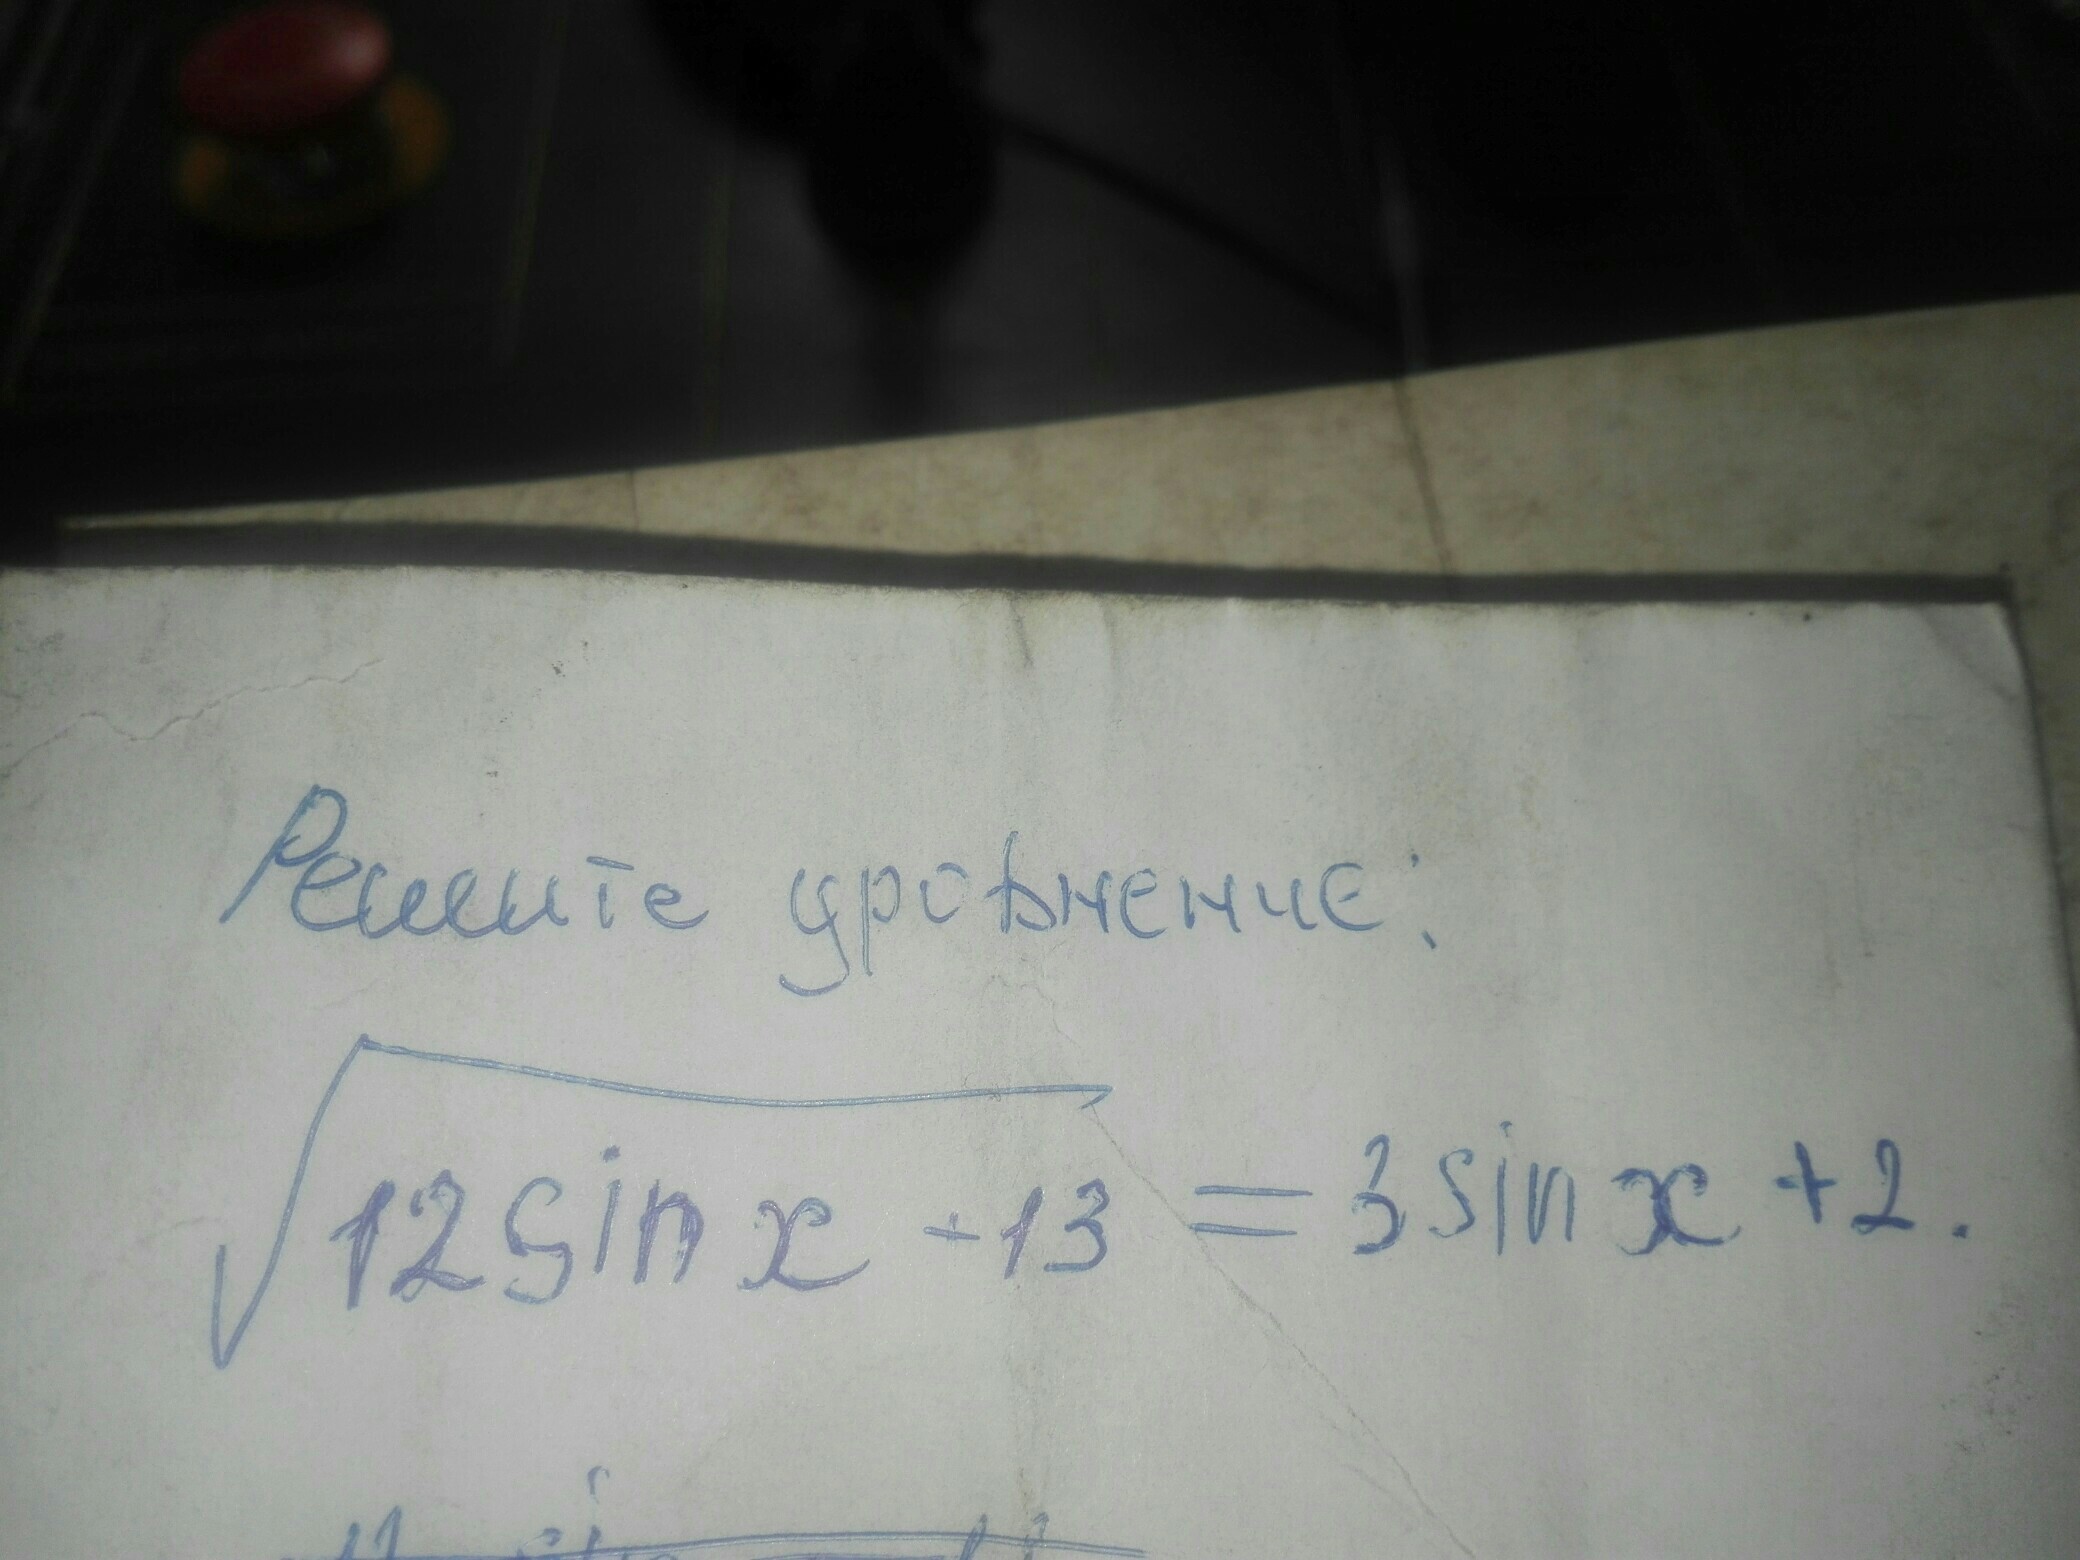 Решите уровнение:
√12 sin x + 13 = 3 sin x + 2.